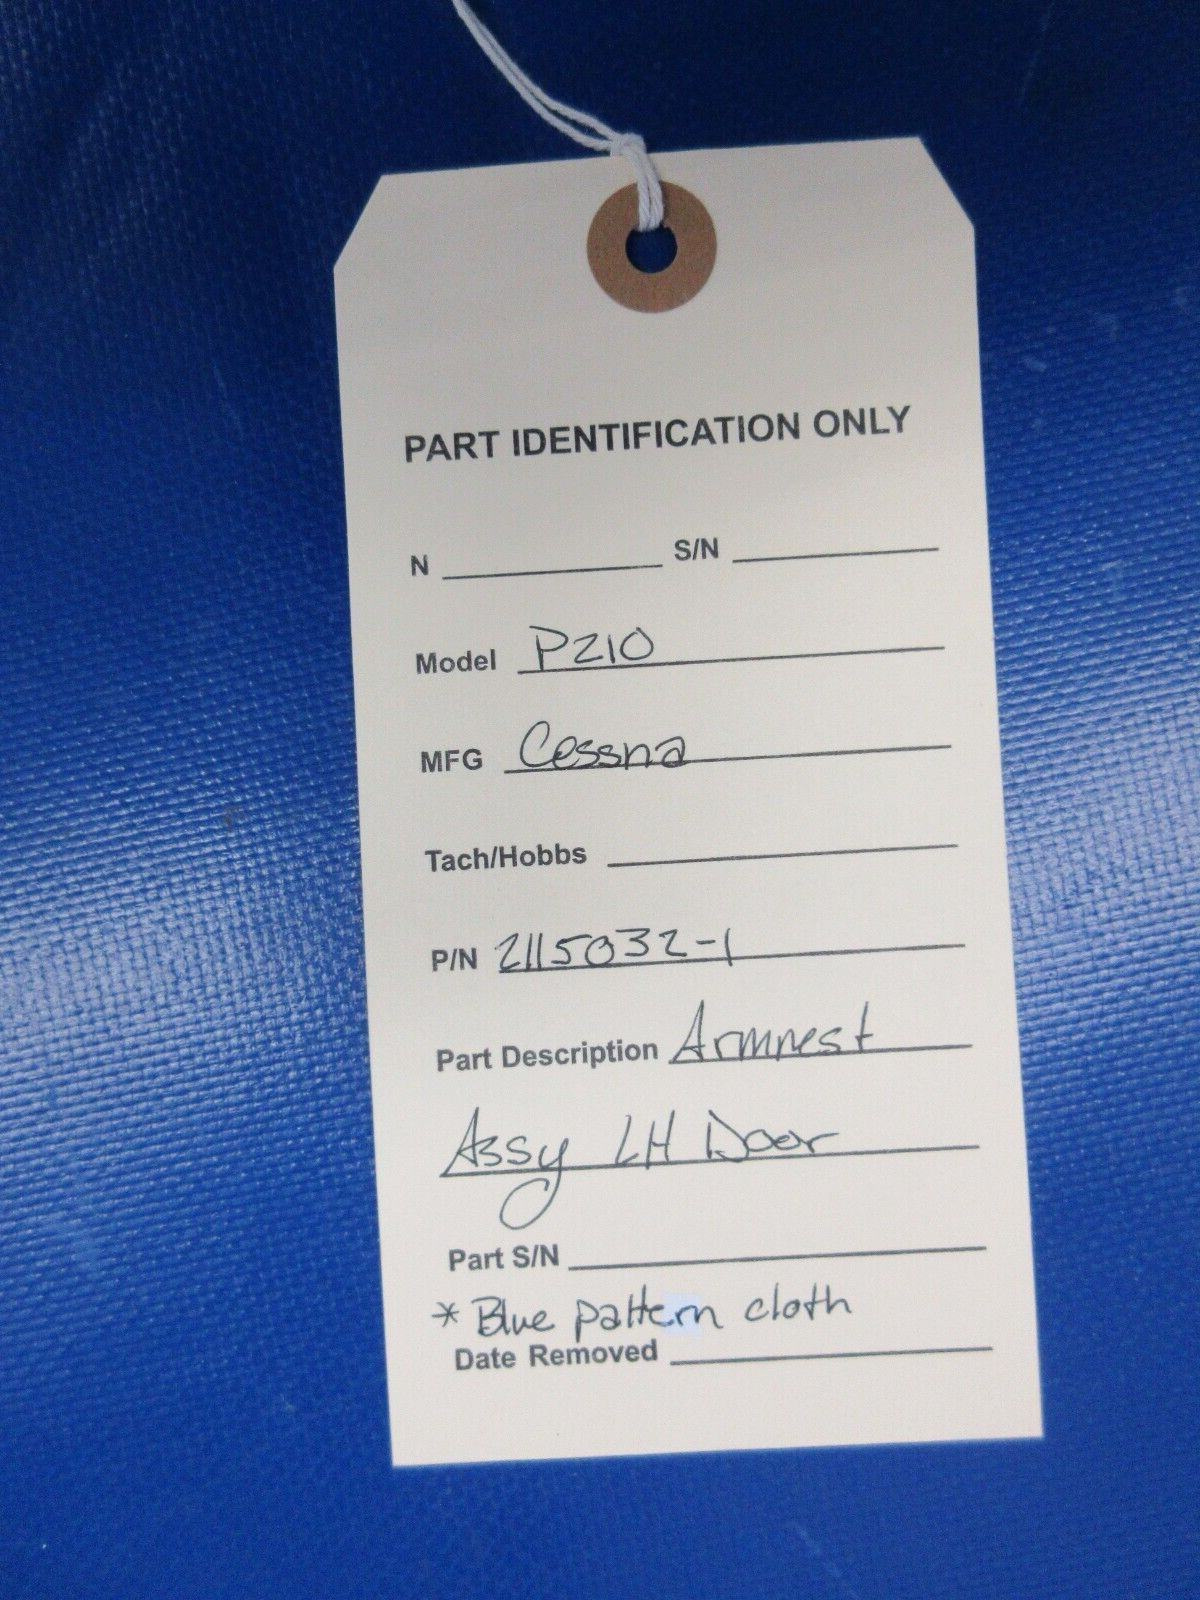 PART IDENTIFICATION ONLY
N S/N
Model P210
MFG Cessna
Tach/Hobbs
P/N 2115032-1
Part Description Armrest
Assy LH Door
Part S/N
* Blue pattern cloth
Date Removed